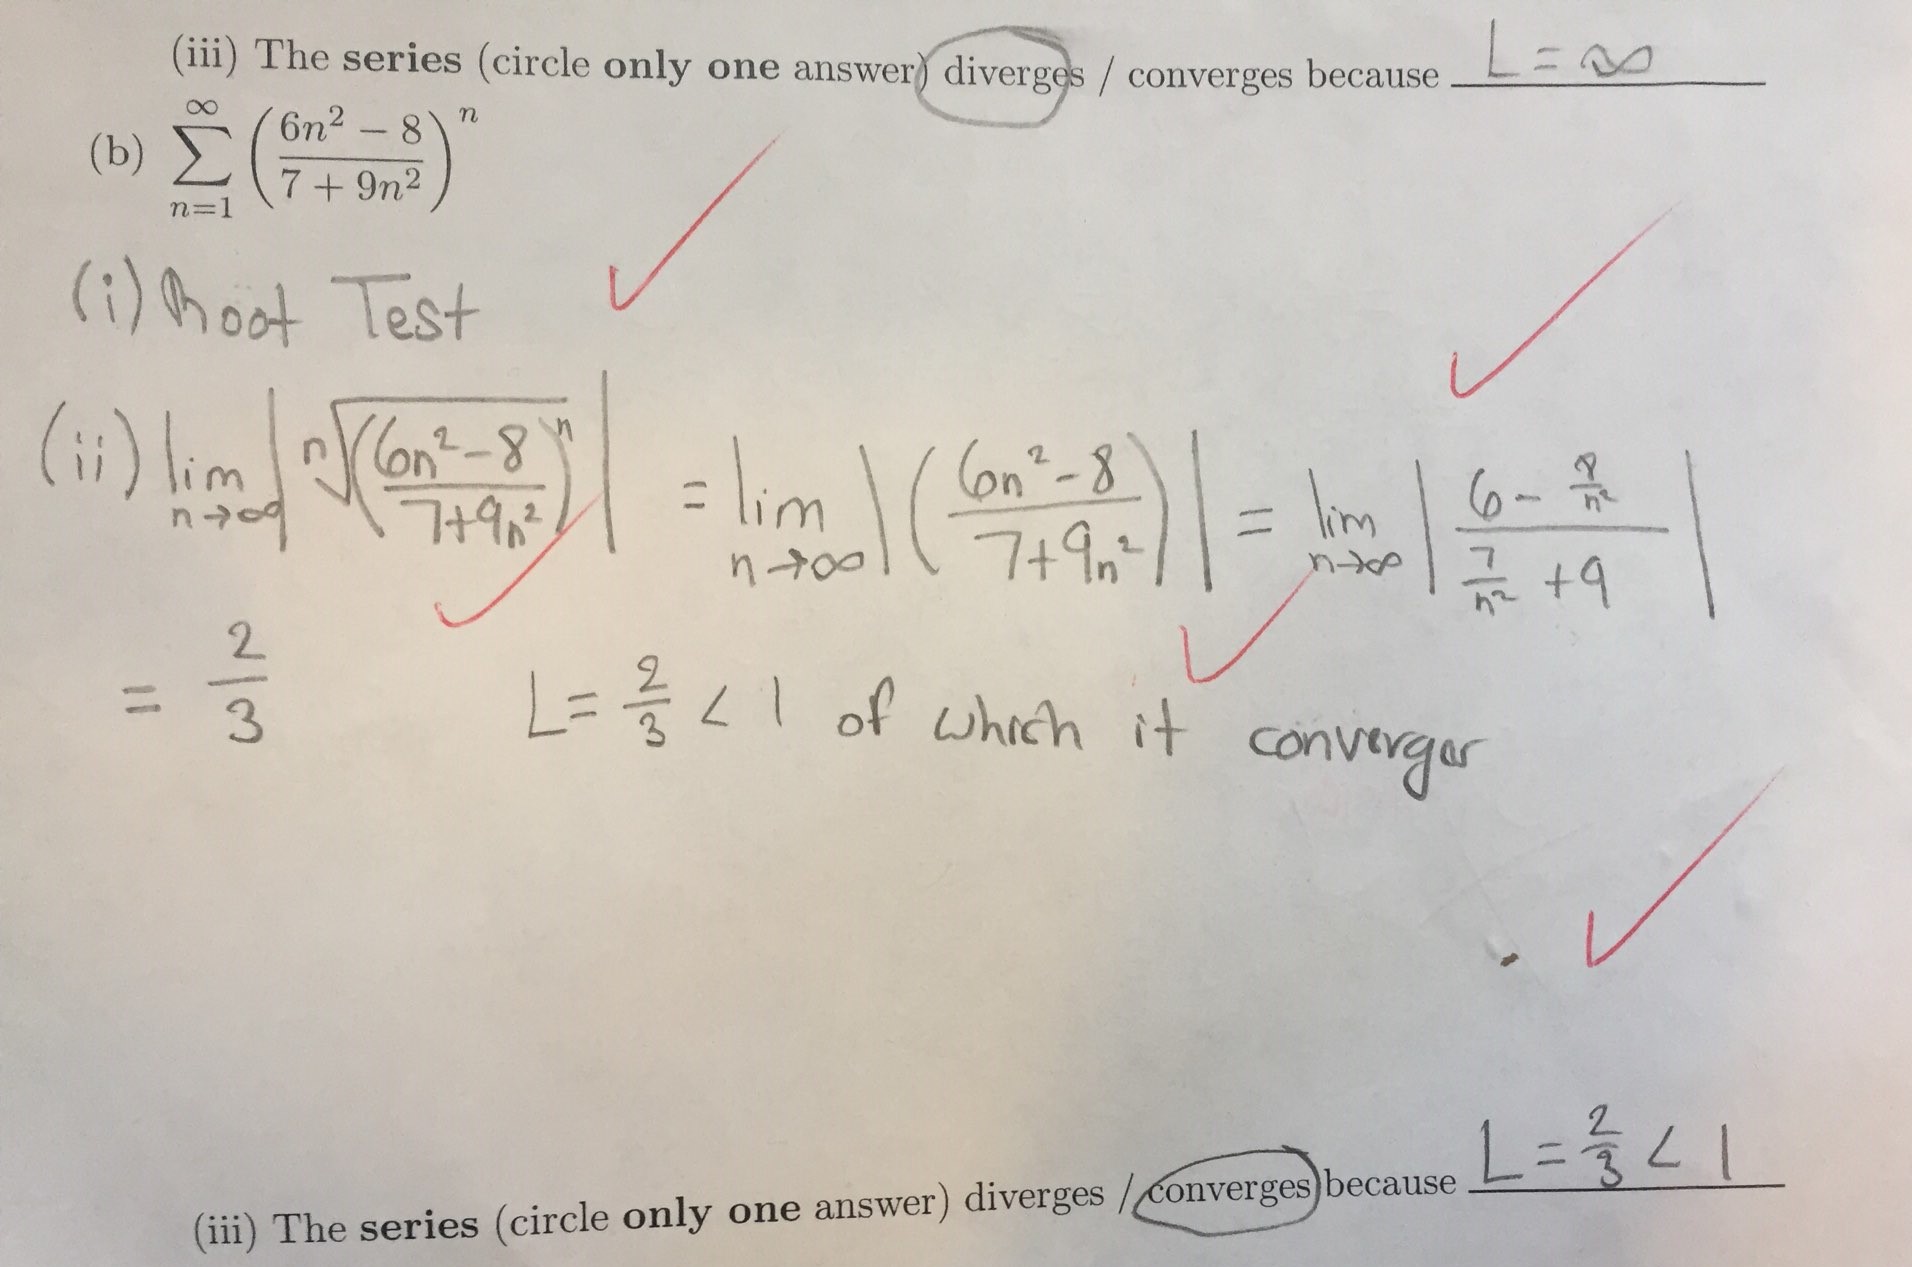 (iii) The series (circle only one answer) diverges / converges because L = ∞
(b) ∑_{n=1}^{∞} ((6n² − 8)/(7 + 9n²))^n
(i) Root Test
(ii) lim_{n→∞} | ⁿ√(((6n²−8)/(7+9n²))^n) | = lim_{n→∞} | ((6n²−8)/(7+9n²)) | = lim_{n→∞} | (6 − 8/n²)/(7/n² + 9) |
= 2/3 L = 2/3 < 1 of which it converges
(iii) The series (circle only one answer) diverges / converges because L = 2/3 < 1